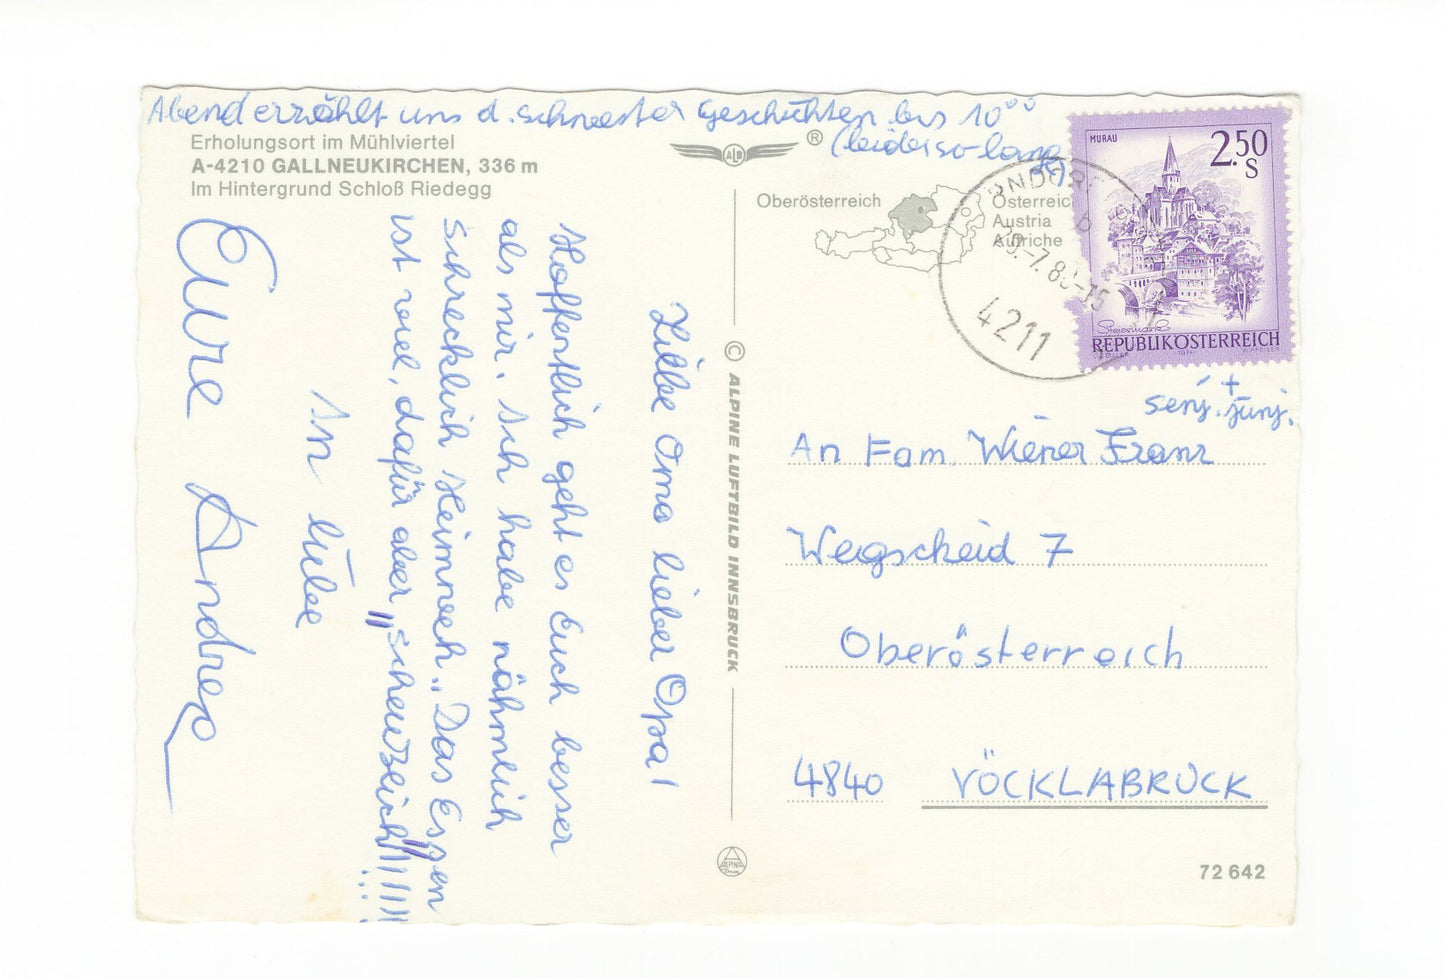 Abend erzählt uns d. Schwester Geschichten bis 10°°
(leider so lang
Erholungsort im Mühlviertel
A-4210 GALLNEUKIRCHEN, 336 m
Im Hintergrund Schloß Riedegg
Liebe Oma lieber Opa!
Hoffentlich geht es Euch besser
als mir. Ich habe nähmlich
schrecklich Heimweh. Das Essen
ist viel, dafür aber "scheuzlich"!!!!!!
In Liebe
Eure Andrea
ALB
®
Oberösterreich
Österreich
Austria
Autriche
© ALPINE LUFTBILD INNSBRUCK
ALPINA
72 642
MURAU
2.50
S
Steiermark
REPUBLIK ÖSTERREICH
1974
4211
senj. + junj.
An Fam. Wiener Franz
Wegscheid 7
Oberösterreich
4840 VÖCKLABRUCK